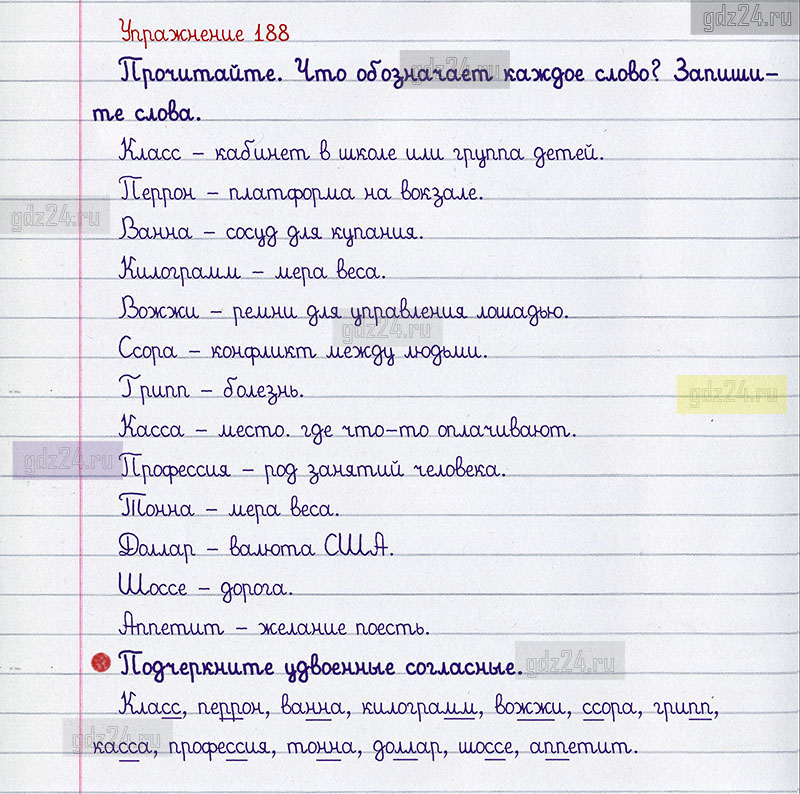 gdz24.ru
Упражнение 188
Прочитайте. Что обозначает каждое слово? Запиши-
gdz24.ru
те слова.
Класс – кабинет в школе или группа детей.
Перрон – платформа на вокзале.
gdz24.ru
Ванна – сосуд для купания.
Килограмм – мера веса.
Вожжи – ремни для управления лошадью.
gdz24.ru
Ссора – конфликт между людьми.
Грипп – болезнь.
gdz24.ru
Касса – место. где что-то оплачивают.
gdz24.ru
Профессия – род занятий человека.
Тонна – мера веса.
Доллар – валюта США.
Шоссе – дорога.
Аппетит – желание поесть.
Подчеркните удвоенные согласные.
gdz24.ru
Класс, перрон, ванна, килограмм, вожжи, ссора, грипп,
gdz24.ru
касса, профессия, тонна, доллар, шоссе, аппетит.